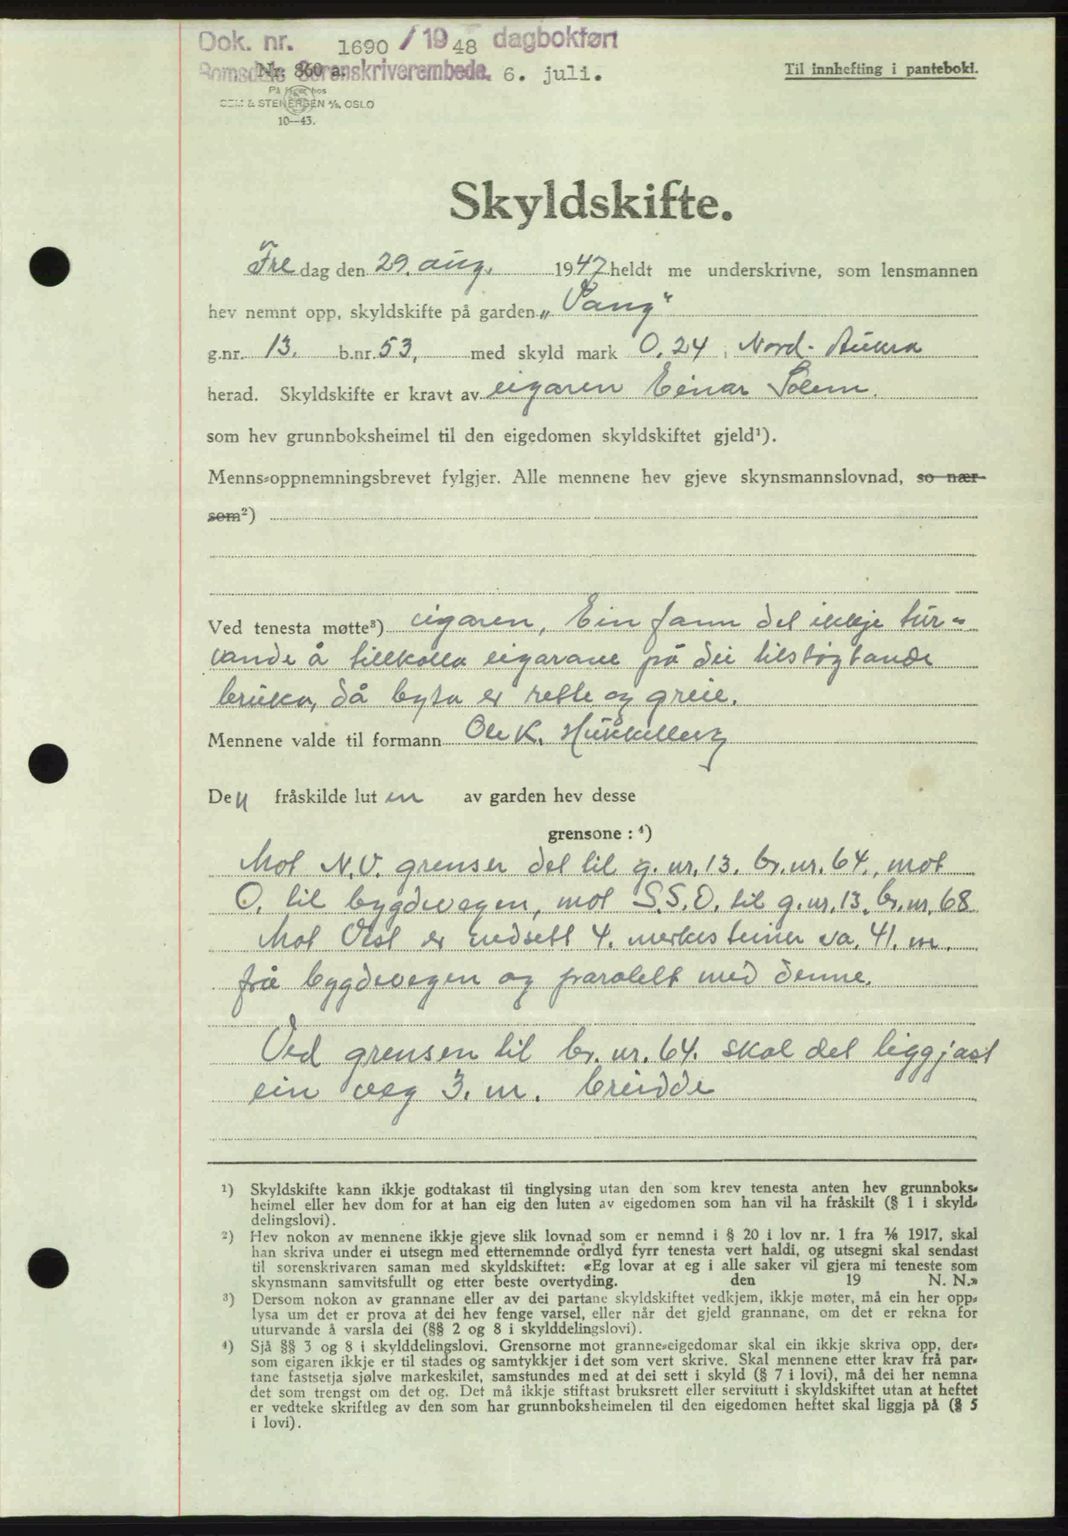 Dok. nr. 1690 / 19 48 dagbokført
Romsdals Sorenskriverembede. 6. juli.
Nr. 860 a.
Til innhefting i panteboki.
På lager hos
SEM & STENERSEN A/S, OSLO
10—43.
Skyldskifte.
Fre dag den 29. aug. 1947 heldt me underskrivne, som lensmannen
hev nemnt opp, skyldskifte på garden „Vang“
g.nr. 13. b.nr. 53, med skyld mark 0.24, Nord-Aukra
herad. Skyldskifte er kravt av eigaren Einar Solem.
som hev grunnboksheimel til den eigedomen skyldskiftet gjeld¹).
Menns-oppnemningsbrevet fylgjer. Alle mennene hev gjeve skynsmannslovnad, so nær-
som²)
Ved tenesta møtte³) eigaren, Ein fann det ikkje tur-
vande å tillkalla eigarane på dei tilstøytande
bruka, då byta er rette og greie.
Mennene valde til formann Ole K.
Den fråskilde luten av garden hev desse
grensone : ⁴)
Mot N.V. grenser det til g.nr. 13. br.nr. 64., mot
O. til bygdevegen, mot S.S.O. til g.nr. 13, br.nr. 68
Mot Vest er nedsett 4. merkesteiner ca. 41. m.
frå bygdevegen og paralelt med denne.
Ved grensen til br. nr. 64. skal det liggjast
ein veg 3. m. breidde
¹) Skyldskifte kann ikkje godtakast til tinglysing utan den som krev tenesta anten hev grunnboks-
heimel eller hev dom for at han eig den luten av eigedomen som han vil ha fråskilt (§ 1 i skyld-
delingslovi).
²) Hev nokon av mennene ikkje gjeve slik lovnad som er nemnd i § 20 i lov nr. 1 fra 1/6 1917, skal
han skriva under ei utsegn med etternemnde ordlyd fyrr tenesta vert haldi, og utsegni skal sendast
til sorenskrivaren saman med skyldskiftet: «Eg lovar at eg i alle saker vil gjera mi teneste som
skynsmann samvitsfullt og etter beste overtyding. den 19 N. N.»
³) Dersom nokon av grannane eller av dei partane skyldskiftet vedkjem, ikkje møter, må ein her opp-
lysa um det er prova at dei hev fenge varsel, eller når det gjeld grannane, om det er rekna for
uturvande å varsla dei (§§ 2 og 8 i skylddelingslovi).
⁴) Sjå §§ 3 og 8 i skylddelingslovi. Grensorne mot granne-eigedomar skal ein ikkje skriva opp, der-
som eigaren ikkje er til stades og samtykkjer i det som vert skrive. Skal mennene etter krav frå par-
tane fastsetja sjølve markeskilet, samstundes med at dei sett i skyld (§ 7 i lovi), må dei her nemna
det som trengst om det og. Det må ikkje stiftast bruksrett eller servitutt i skyldskiftet utan at heftet
er vedteke skriftleg av den som har grunnboksheimelen til den eigedomen heftet skal liggja på (§ 5
i lovi).